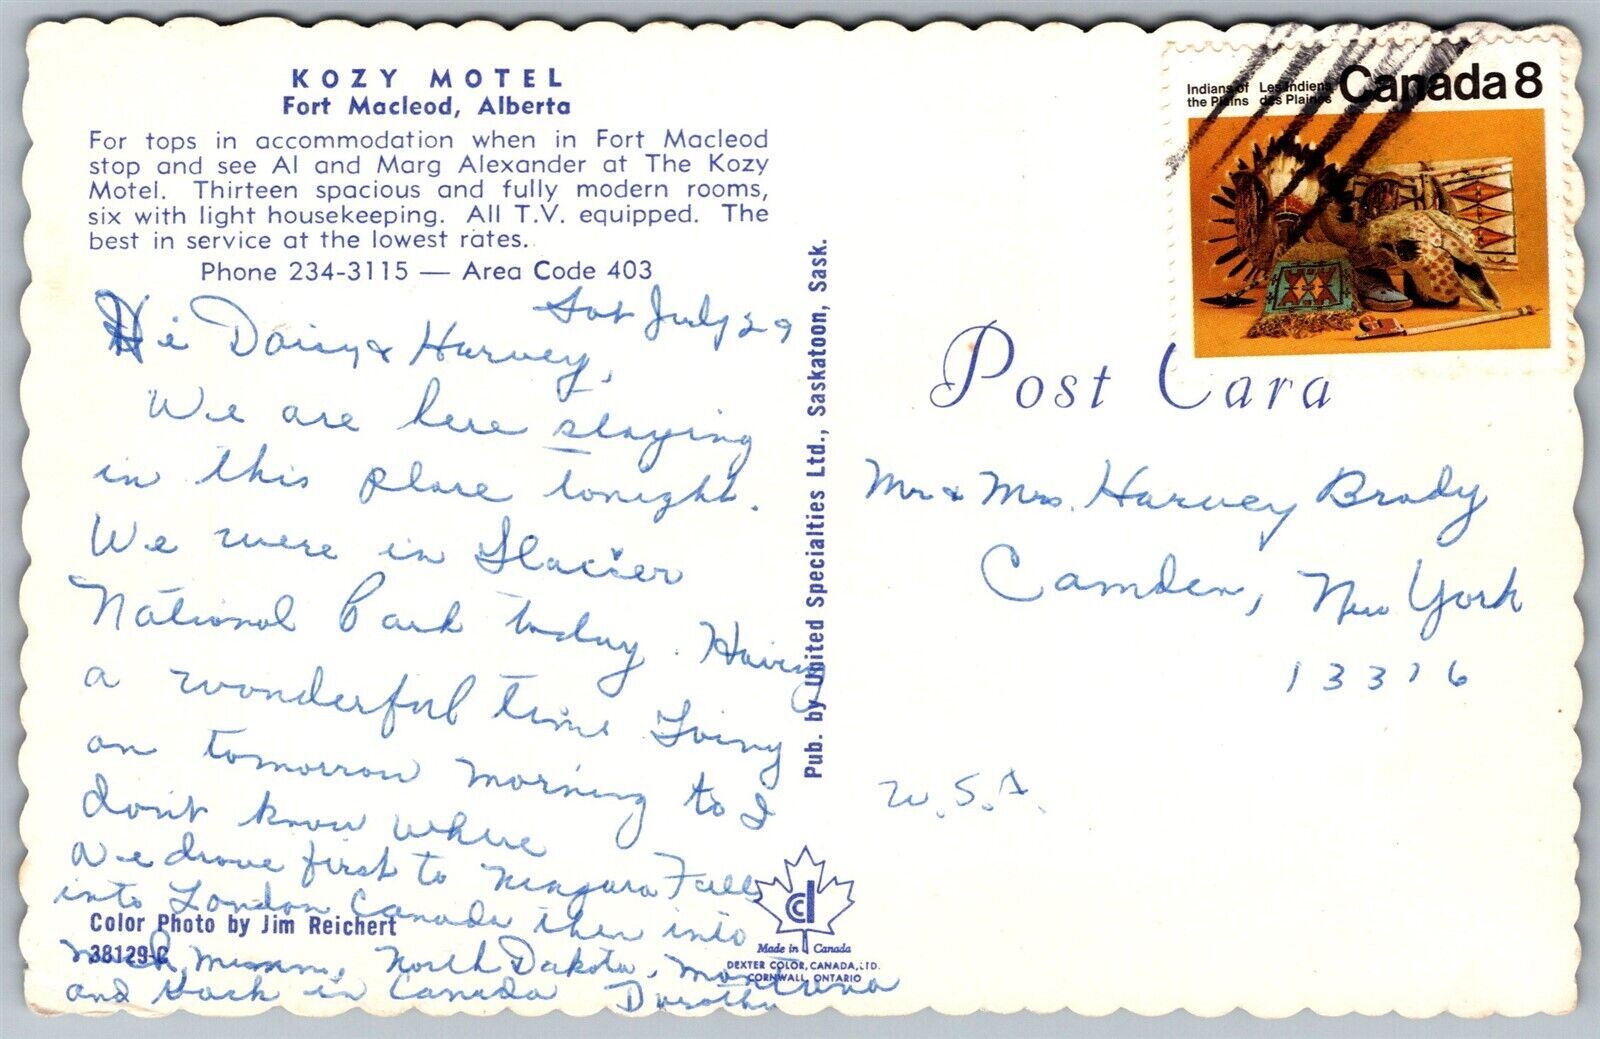 KOZY MOTEL
Fort Macleod, Alberta
For tops in accommodation when in Fort Macleod
stop and see Al and Marg Alexander at The Kozy
Motel. Thirteen spacious and fully modern rooms,
six with light housekeeping. All T.V. equipped. The
best in service at the lowest rates.
Phone 234-3115 — Area Code 403
Sat July 29
Hi Daisy & Harvey,
We are here staying
in this place tonight.
We were in Glacier
National Park today. Having
a wonderful time Going
on tomorrow morning to I
don't know where
We drove first to Niagara Falls
into London Canada then into
Mich, North Dakota, Montana
and back in Canada Dorothy
Color Photo by Jim Reichert
38129-C
Pub. by United Specialties Ltd., Saskatoon, Sask.
Made in Canada
DEXTER COLOR, CANADA, LTD.
CORNWALL, ONTARIO
Indians of the Plains
Les Indiens des Plaines
Canada 8
Post Card
Mr & Mrs. Harvey Brady
Camden, New York
13316
U.S.A.